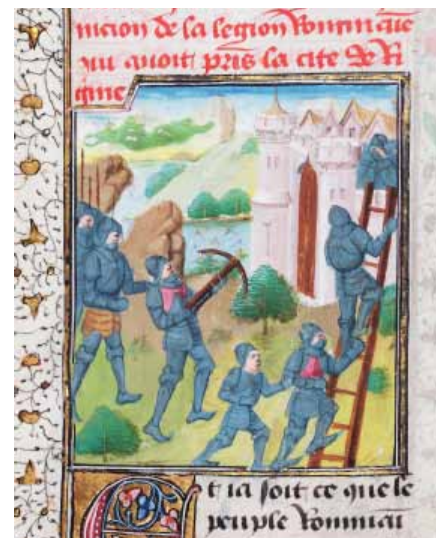 nicion de la legion Rommaine
qui auoit pris la cite de Ri
gine
Et ia soit ce que le
peuple Rommai